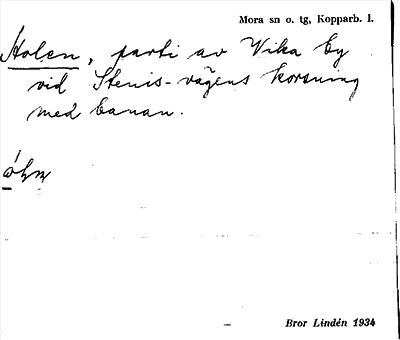 Mora sn o. tg, Kopparb. l.
Holen, parti av Vika by
vid Stenis-vägens korsning
med banan.
Bror Lindén 1934